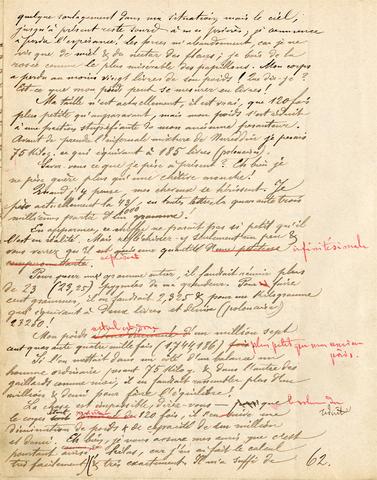 quelque soulagement dans ma situation, mais le ciel,
jusqu'à présent reste sourd à mes prières; je commence
à perdre l'espérance! les forces m'abandonnent, car je ne
vis que de miel & du nectar des fleurs; je bois de la
rosée comme le plus misérable des papillons. Mon corps
a perdu au moins vingt livres de son poids! Que dis-je?
Est-ce que mon poids peut se mesurer en livres!
Ma taille n'est actuellement, il est vrai, que 120 fois
plus petite qu'auparavant, mais mon poids s'est réduit
à une portion stupéfiante de mon ancienne pesanteur.
Avant de prendre l'infernal élixir de Nureddin je pesais
75 kilos, ce qui équivaut à 185 livres (polonaises)
Savez vous ce que je pèse à présent? Eh bien je
ne pèse guère plus qu'une chétive mouche!
Quand j'y pense, mes cheveux se hérissent. Je
pèse actuellement la 43/1000, en toutes lettres la quarante trois
millièmes partie d'un gramme!
En apparence, ce chiffre ne paraît pas si petit qu'il
l'est en réalité. Mais réfléchissez-y seulement un peu &
vous verrez que c'est une quantité infinitésimale
Pour peser un gramme entier, il faudrait réunir plus
de 23 (23,25) pygmées de ma grandeur. Pour faire
cent grammes, il en faudrait 2,325 & pour un kilogramme
qui équivaut à deux livres et demie (polonaises)
23250!
Mon poids actuel est donc d'un million sept
cent quarante quatre mille fois (1744186) plus petit que mon ancien
poids.
Si l'on mettait dans un côté d'un balance un
homme ordinaire pesant 75 kilog. & dans l'autre des
gaillards comme moi, il en faudrait rassembler plus d'un
million & demi pour faire l'équilibre!
réduit de 120 fois, il
diminution de poids & de capacité de un million
et demi. Eh bien, je vous assure mes amis que c'est
pourtant ainsi hélas, car j'en ai fait le calcul
très facilement & très exactement. Il m'a suffi de
62.